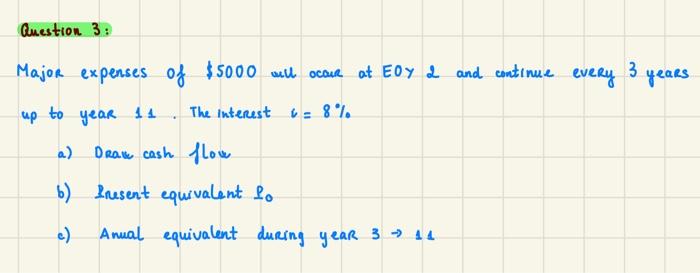 Question 3:
Major expenses of $5000 will occur at EOY 2 and continue every 3 years
up to year 11. The interest i = 8%
a) Draw cash flow
b) Present equivalent P₀
c) Anual equivalent during year 3 → 11